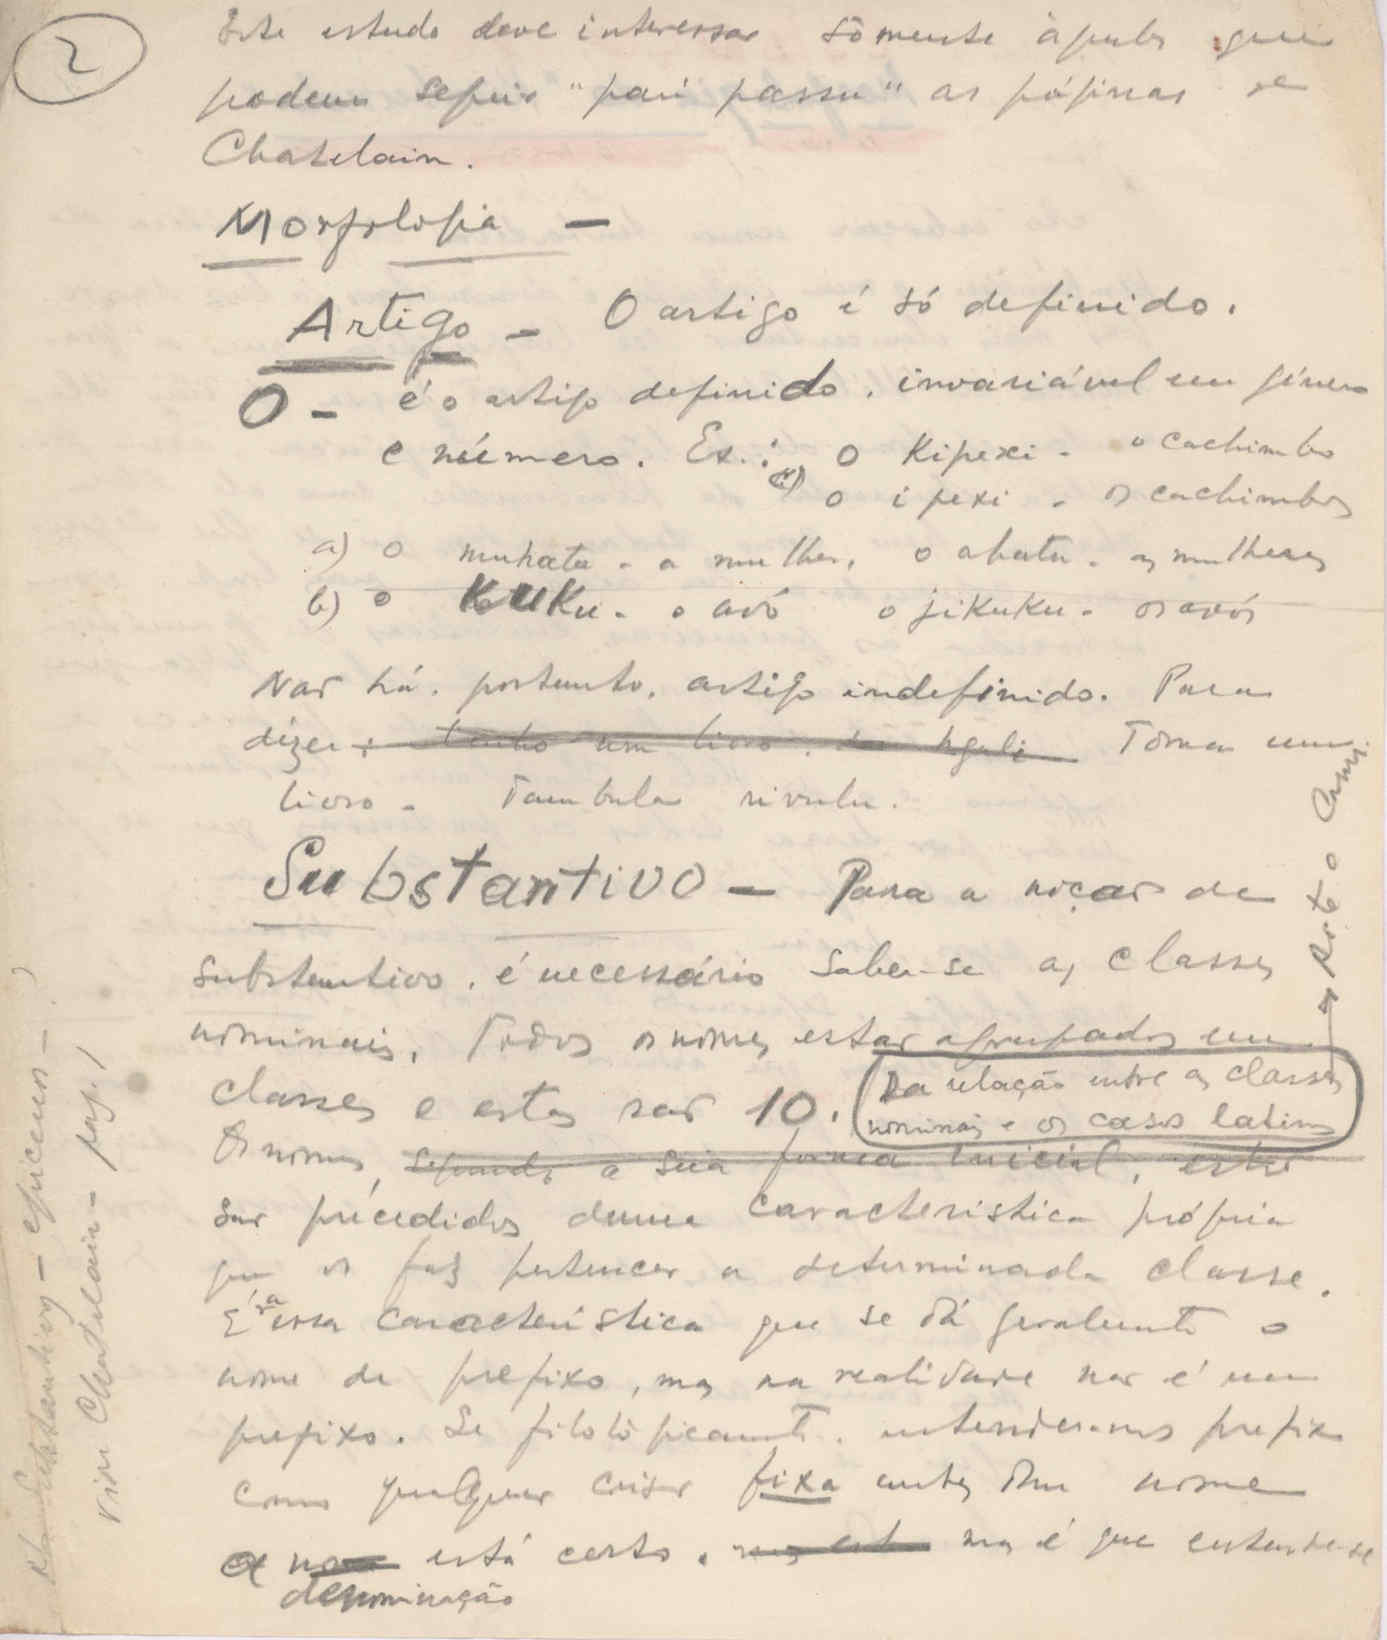 2
Este estudo deve interessar sòmente àqueles que
podem seguir "pari passu" as páginas de
Chatelain.
Morfologia —
Artigo — O artigo é só definido.
O — é o artigo definido, invariável em género
e número. Ex.: O Kipexi - o cachimbo
c) o ipexi - os cachimbos
a) o muhatu - a mulher, o ahatu - as mulheres
b) o KuKu - o avô o jiKuKu - os avós
Não há, portanto, artigo indefinido. Para
dizer: tenho um livro, Toma um
livro - Tambula rivulu.
Substantivo — Para a noção de
substantivo, é necessário saber-se as classes
nominais. Todos os nomes estão agrupados em
classes e estas são 10. Da relação entre as classes
nominais e os casos latinos
Os nomes, segundo a sua forma inicial, estão
são precedidos duma característica própria
que os faz pertencer a determinada classe.
É essa característica que se dá geralmente o
nome de prefixo, mas na realidade não é um
prefixo. Se filològicamente, entendermos prefixo
como qualquer coisa fixa antes dum nome
a está certo, mas é que entende-se
denominação
Substantivos - epicenos -
vide Chatelain - pag. 1